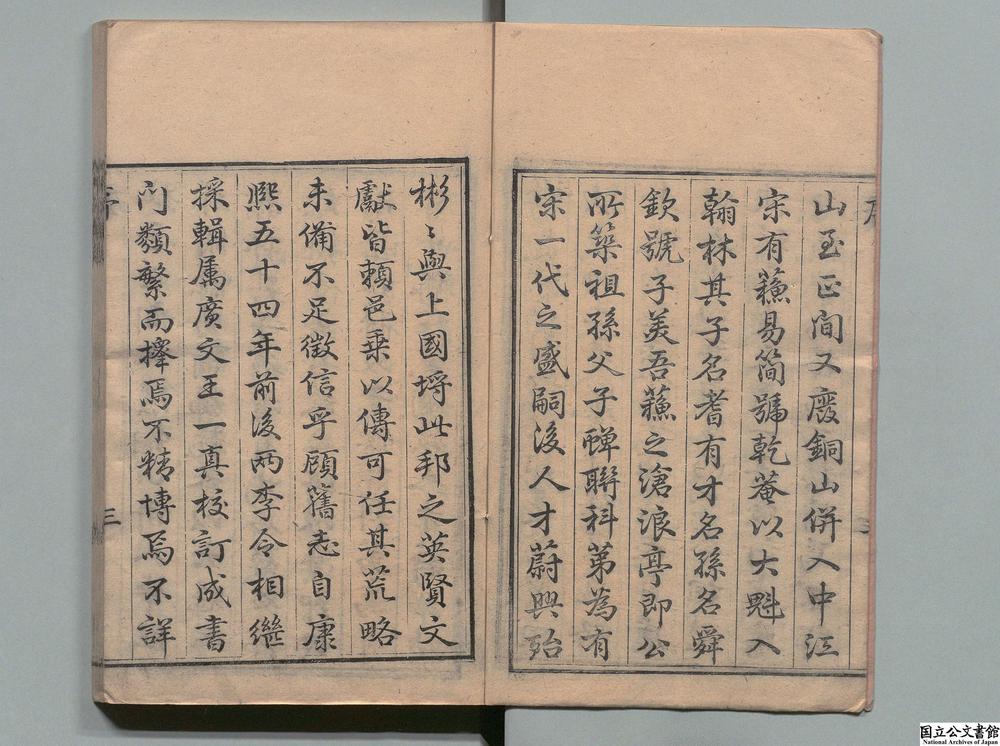 山至正间又廢銅山併入中江
宋有蘓易简號乾菴以大魁入
翰林其子名耆有才名孫名舜
欽號子美吾蘓之滄浪亭即公
所築祖孫父子蟬聯科第為有
宋一代之盛嗣後人才蔚興殆
彬〻與上國埒此邦之英賢文
獻皆賴邑乗以傳可任其荒略
未備不足徵信乎顧舊志自康
熙五十四年前後两李令相繼
採輯属廣文王一真校訂成書
门類繁而擇焉不精博焉不詳
序
三
国立公文書館
National Archives of Japan